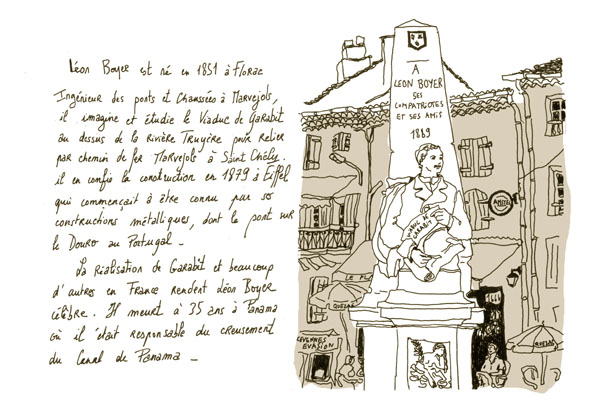 Léon Boyer est né en 1851 à Florac
Ingénieur des ponts et Chaussées à Marvejols,
il imagine et étudie le Viaduc de Garabit
au dessus de la rivière Truyère pour relier
par chemin de fer Marvejols à Saint Chély.
il en confie la construction en 1879 à Eiffel
qui commençait à être connu par so
constructions métalliques, dont le pont sur
le Douro au Portugal_
La réalisation de Garabit et beaucoup
d'autres en France rendent Léon Boyer
célèbre. Il meurt à 35 ans à Panama
où il était responsable du creusement
du Canal de Panama_
A
LEON BOYER
SES
COMPATRIOTES
ET SES AMIS
1889
VIADUC DE
GARABIT
LE FL
QUEZAC
CEVENNES
EVASION
QUEZAC